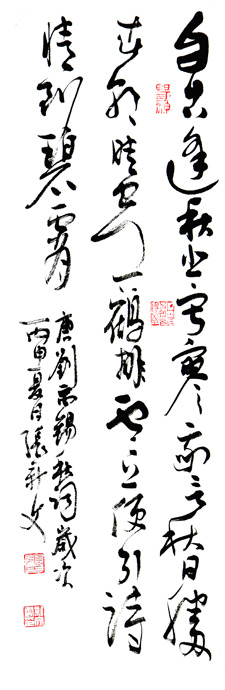 自古逢秋悲寂寥我言秋日勝
春朝晴空一鶴排雲上便引詩
情到碧霄
唐劉禹錫秋詞歲次
丙申夏日張新文